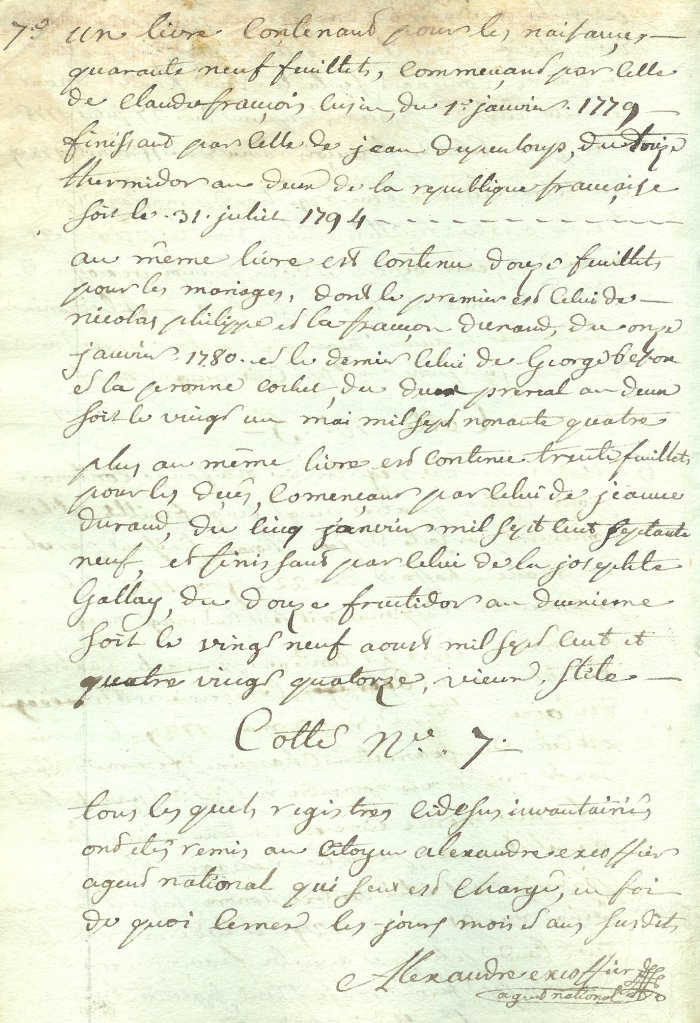 7.º un livre Contenant pour les naisances —
quarante neuf feuillets, Commencant par Celle
de Claude françois , du 1.r janvier 1779 —
finissant par Celle de jean dupenloup, du treize
thermidor au deux de la republique françoise
soit le 31. juliet 1794 - - - - - - - - - -
au même livre est Contenu douze feuillets
pour les mariages, dont le premier est Celui de —
nicolas philippe et la françon durand, du onze
janvier 1780. et le dernier Celui de George
et la peronne cochet, du deux prereal an deux
soit le vingt un mai mil sept nonante quatre
plus au même livre est Contenu trente feuillet
pour les decès, Comencant par Celui de jeanne
durand, du Cinq janvier mil sept Cent septante
neuf, et finissant par Celui de la josephte
Gallay, du douze fructidor an deuxieme
soit le vingt neuf aoust mil sept Cent et
quatre vingt quatorze, vieux stile —
Cotté N.º 7. —
tous les quels registres Cidesus inventairiés
ont étés remis au Citoyen alexandre excoffier
agent national qui sent est Chargé, en foi
de quoi les jours mois et ans susdits
Alexandre excoffier
agent national